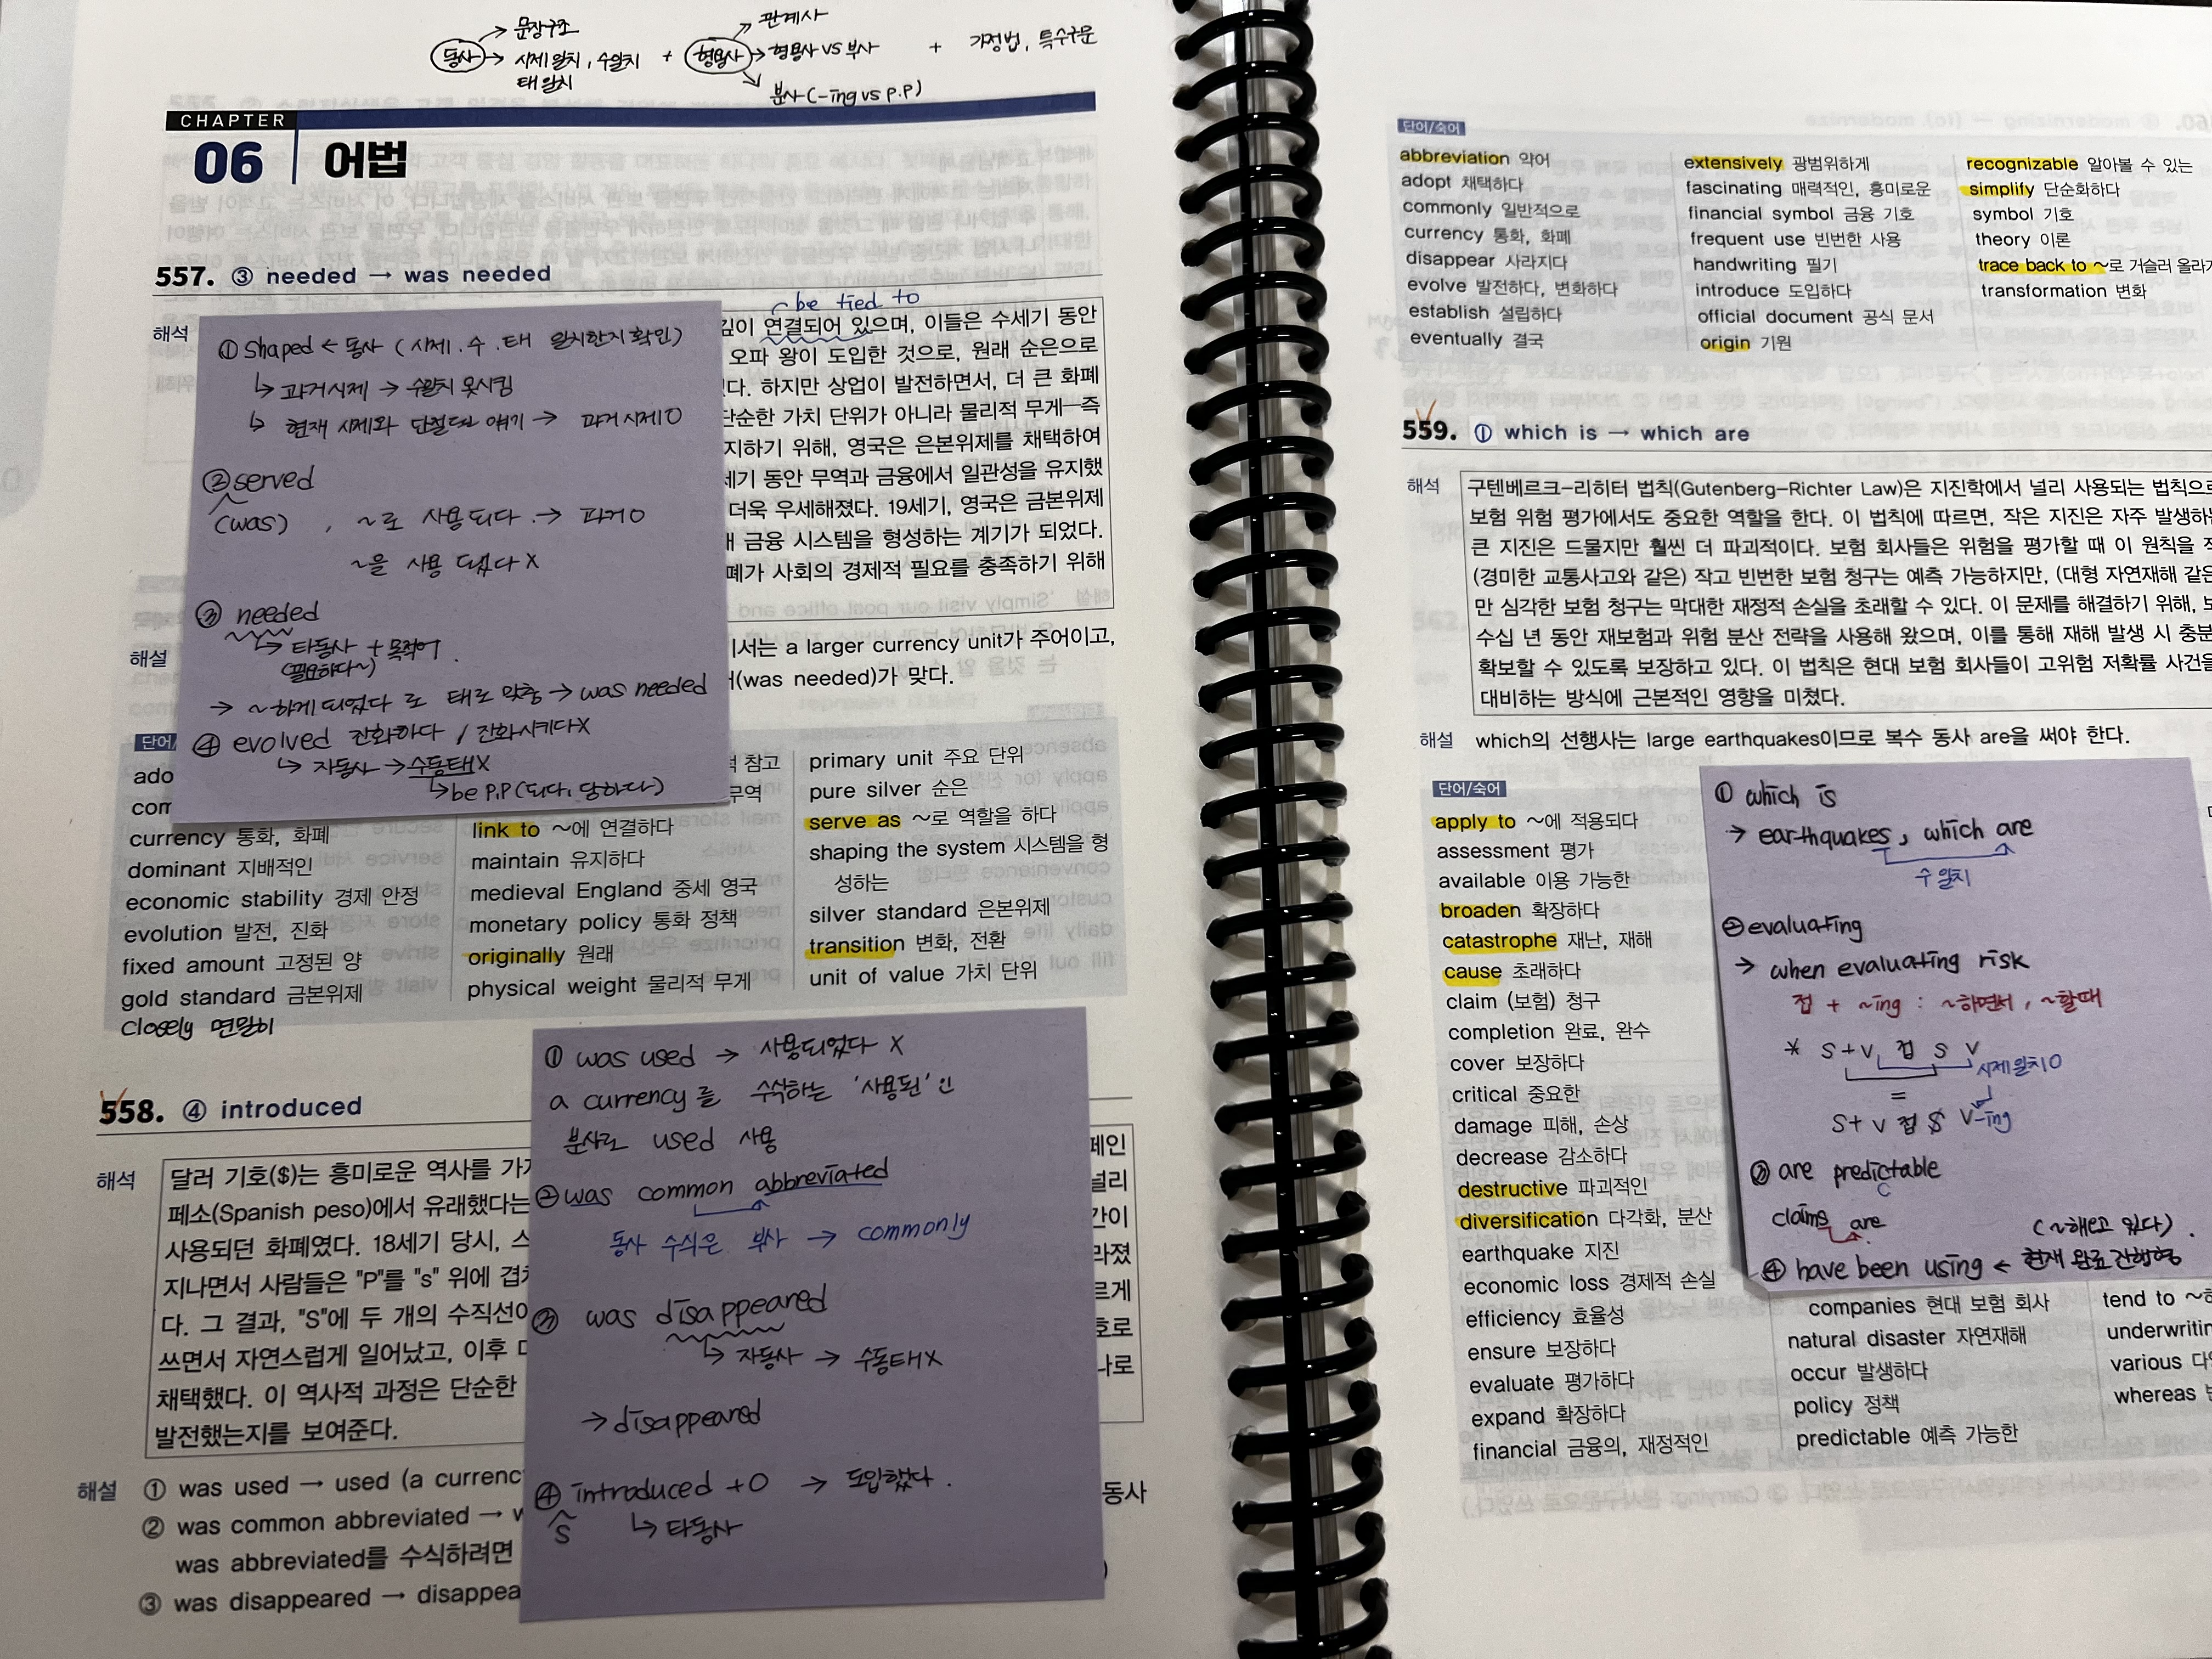 문장구조
동사 → 시제일치, 수일치
태일치
+
관계사
형용사 → 형용사 vs 부사
분사(-ing vs p.p)
+ 가정법, 특수구문
CHAPTER
06 어법
557. ③ needed → was needed
be tied to
해석
깊이 연결되어 있으며, 이들은 수세기 동안
오파 왕이 도입한 것으로, 원래 순은으로
다. 하지만 상업이 발전하면서, 더 큰 화폐
단순한 가치 단위가 아니라 물리적 무게—즉
지하기 위해, 영국은 은본위제를 채택하여
세기 동안 무역과 금융에서 일관성을 유지했
더욱 우세해졌다. 19세기, 영국은 금본위제
금융 시스템을 형성하는 계기가 되었다.
폐가 사회의 경제적 필요를 충족하기 위해
① shaped ← 동사 (시제.수.태 일치한지 확인)
↳ 과거시제 → 수일치 못시킴
↳ 현재 시제와 단절된 얘기 → 과거시제 O
② served
(was) , ~로 사용되다. → 과거 O
~을 사용 됬다 X
③ needed
↳ 타동사 + 목적어.
(필요하다~)
→ ~하게 되었다 로 태로 맞춤 → was needed
④ evolved 진화하다 / 진화시키다 X
↳ 자동사 → 수동태 X
↳ be P.P (되다, 당하다)
해설
서는 a larger currency unit가 주어이고,
(was needed)가 맞다.
단어/
ado
com
currency 통화, 화폐
dominant 지배적인
economic stability 경제 안정
evolution 발전, 진화
fixed amount 고정된 양
gold standard 금본위제
closely 면밀히
참고
무역
link to ~에 연결하다
maintain 유지하다
medieval England 중세 영국
monetary policy 통화 정책
originally 원래
physical weight 물리적 무게
primary unit 주요 단위
pure silver 순은
serve as ~로 역할을 하다
shaping the system 시스템을 형
성하는
silver standard 은본위제
transition 변화, 전환
unit of value 가치 단위
558. ④ introduced
해석
달러 기호($)는 흥미로운 역사를 가지
페소(Spanish peso)에서 유래했다는
사용되던 화폐였다. 18세기 당시, 스
지나면서 사람들은 "P"를 "s" 위에 겹치
다. 그 결과, "S"에 두 개의 수직선이
쓰면서 자연스럽게 일어났고, 이후 미
채택했다. 이 역사적 과정은 단순한
발전했는지를 보여준다.
페인
널리
간이
라졌
르게
호로
나로
해설
① was used → used (a currenc
② was common abbreviated → w
was abbreviated를 수식하려면
③ was disappeared → disappea
동사
① was used → 사용되었다 X
a currency를 수식하는 '사용된' 인
분사로 used 사용
② was common abbreviated
동사 수식은 부사 → commonly
③ was disappeared
↳ 자동사 → 수동태 X
→ disappeared
④ introduced + O → 도입했다.
S ↳ 타동사
단어/숙어
abbreviation 약어
adopt 채택하다
commonly 일반적으로
currency 통화, 화폐
disappear 사라지다
evolve 발전하다, 변화하다
establish 설립하다
eventually 결국
extensively 광범위하게
fascinating 매력적인, 흥미로운
financial symbol 금융 기호
frequent use 빈번한 사용
handwriting 필기
introduce 도입하다
official document 공식 문서
origin 기원
recognizable 알아볼 수 있는
simplify 단순화하다
symbol 기호
theory 이론
trace back to ~로 거슬러 올라가
transformation 변화
559. ① which is → which are
해석
구텐베르크-리히터 법칙(Gutenberg-Richter Law)은 지진학에서 널리 사용되는 법칙으로
보험 위험 평가에서도 중요한 역할을 한다. 이 법칙에 따르면, 작은 지진은 자주 발생하는
큰 지진은 드물지만 훨씬 더 파괴적이다. 보험 회사들은 위험을 평가할 때 이 원칙을 적
(경미한 교통사고와 같은) 작고 빈번한 보험 청구는 예측 가능하지만, (대형 자연재해 같은
만 심각한 보험 청구는 막대한 재정적 손실을 초래할 수 있다. 이 문제를 해결하기 위해, 보
수십 년 동안 재보험과 위험 분산 전략을 사용해 왔으며, 이를 통해 재해 발생 시 충분
확보할 수 있도록 보장하고 있다. 이 법칙은 현대 보험 회사들이 고위험 저확률 사건을
대비하는 방식에 근본적인 영향을 미쳤다.
해설 which의 선행사는 large earthquakes이므로 복수 동사 are을 써야 한다.
단어/숙어
apply to ~에 적용되다
assessment 평가
available 이용 가능한
broaden 확장하다
catastrophe 재난, 재해
cause 초래하다
claim (보험) 청구
completion 완료, 완수
cover 보장하다
critical 중요한
damage 피해, 손상
decrease 감소하다
destructive 파괴적인
diversification 다각화, 분산
earthquake 지진
economic loss 경제적 손실
efficiency 효율성
ensure 보장하다
evaluate 평가하다
expand 확장하다
financial 금융의, 재정적인
① which is
→ earthquakes, which are
수일치
② evaluating
→ when evaluating risk
접 + ~ing : ~하면서, ~할때
* S+V 접 S V
시제일치 O
=
S+V 접 S V-ing
③ are predictable
C
claims are
(~해오고 있다).
④ have been using ← 현재 완료 진행형
companies 현대 보험 회사
natural disaster 자연재해
occur 발생하다
policy 정책
predictable 예측 가능한
tend to
underwritin
various 다
whereas